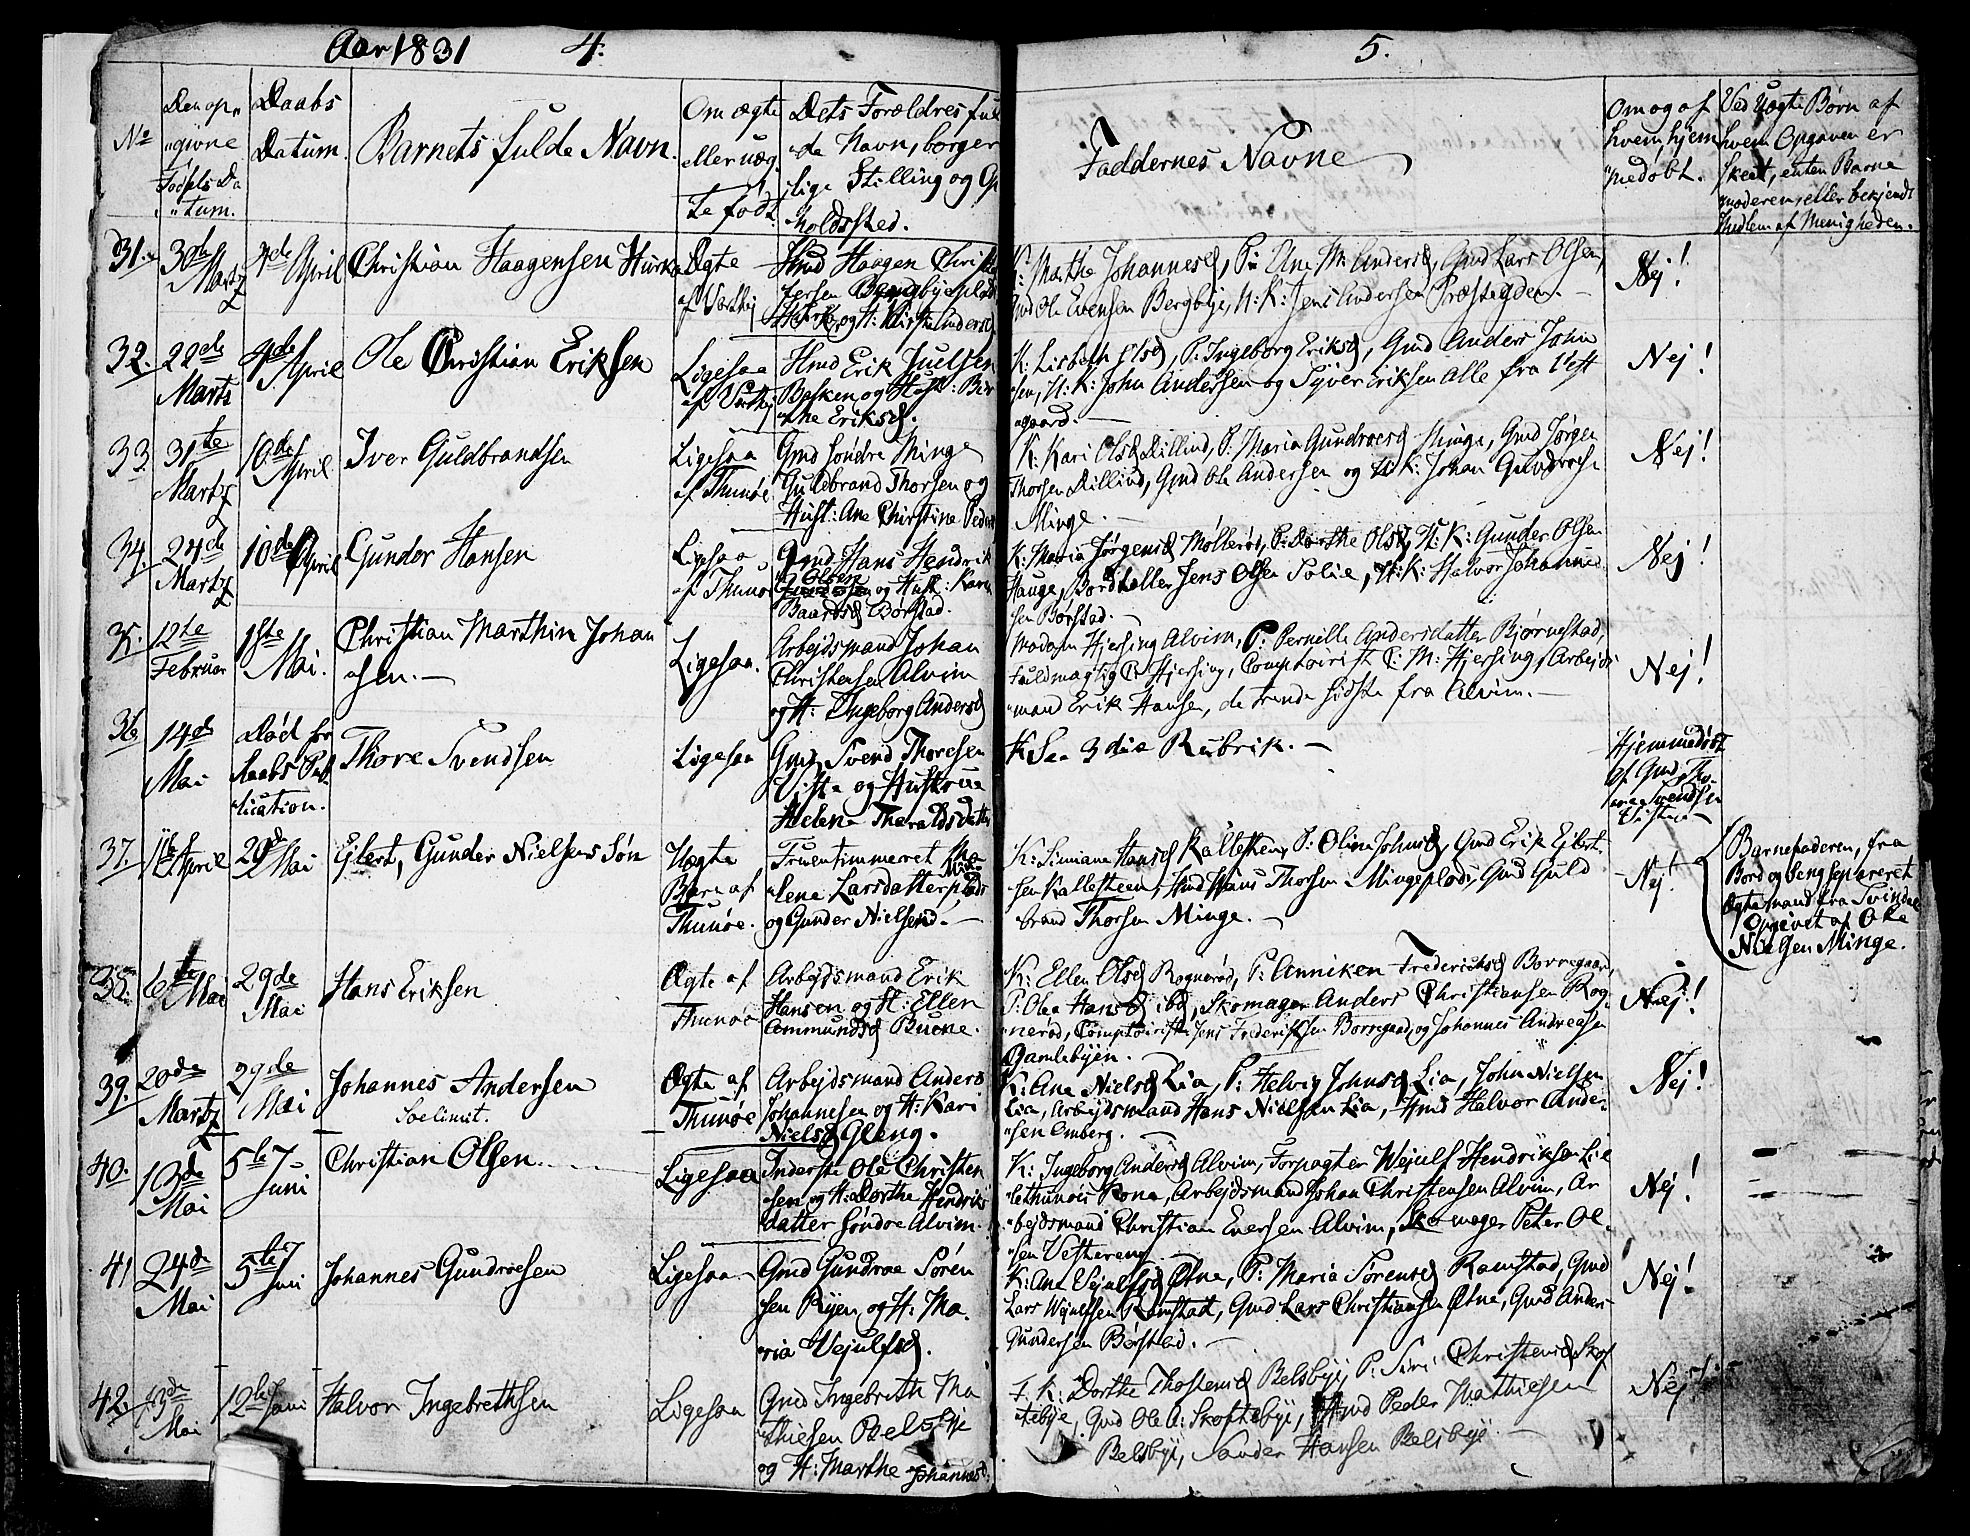 Aar 1831 4.
5.
No
Den op-
givne
Fødsels Da
tum.
Daabs
Datum.
Barnets fulde Navn.
Om ægte
eller uæg
te født
Dets Forældres ful
de Navn, borger
lige Stilling og Op
holdssted.
Faddernes Navne
Om og af
hvem hjem
medøbt.
Ved Uægte Børn af
hvem Opgaven er
skeet, enten Barne
moderen, eller bekjendt
Medlem af Menigheden.
31.
30te
Martz
4de April
Christian Haagensen
Ægte
af
Hmd Haagen Christ
og H: Kirstie Anders
K: Marthe Johannesd, P: Ane M: Andersd, Gmd Lars Olsen,
Gmd Ole Evensen Bergbye, U: K: Jens Andersen Præstegden.
Nej!
32.
28de
Martz
4de April
Ole Christian Eriksen
Ligesaa
af
Hmd Erik Juelsen
Bakken og Hust: Ber
the Eriksd.
K: Lisbeth Olsd, P: Ingeborg Eriksd, Gmd Anders John
sen, U: K: John Andersen og Syver Eriksen alle fra Vest
gaard.
Nej!
33.
31te
Martz
10de April
Iver Guldbrandsen
Ligesaa
af Thunøe
Gmd Søndre Minge
Guldbrand Thorsen og
Hust: Ane Christine Peders
K: Kari Olsd Lillind, P: Maria Gundroesd Minge, Gmd Jørgen
Thorsen Lillind, Gmd Ole Andersen og U: K: Johan Gundroesen
Minge.
Nej!
34.
24de
Martz
10de April
Gundor Hansen
Ligesaa
af Thunøe
Gmd Hans Hendrik
Olsen
og Hust: Karen
Baardsd Børstad.
K: Maria Jørgensd Møllerød, P: Dorthe Olsd, U: K: Gunder Olsen
Hauge, Bordskaller Jens Olsen Solie, U: K: Halvor Johannes
sen Børstad.
Nej!
35.
12te
Februar
1ste
Mai.
Christian Marthin Johan
sen.
Ligesaa.
Arbejdsmand Johan
Christensen Alvim
og H: Ingeborg Andersd
Madam Hjersing Alvim, P: Pernille Andersdatter Bjørnestad,
Fuldmægtig P: Hjersing, Comptoirist P: M: Hjersing, Arbejds
mand Erik Hansen, de trende sidste fra Alvim.
Nej!
36
14de
Mai
Død før
Daabs Pub
lication.
Thore Svendsen
Ligesaa
Gmd Svend Thoresen
Viste og Hustrue
Helene Tharaldsdatter
K See 3die Rubrik.
Hjemmedøbt
af Gmd Tho
re Svendsen
Viste
37.
11te April
29de Mai
Ejlert, Gunder Nielsens Søn
Uægte
Barn af
Thunøe.
Fruentimmeret
lene Larsdatter
og Gunder Nielsen.
K: Simiane Hansd Kallesteen, P: Oline Johnsd, Gmd Erik Ejlert-
sen Kallesteen, Hmd Hans Thorsen Mingepladj, Gmd Guld
brand Thorsen Minge.
Nej!
Barnefaderen, fra
Bord og Seng separeret
Ægtemand fra Svindal
Opgivet af Ole
Nielsen Minge.
38.
6te Mai
29de
Mai
Hans Eriksen
Ægte af
Thunøe
Arbejdsmand Erik
Hansen og H: Ellen
Ammundsd Buene.
K: Ellen Olsd Rognerød, P: Anniken Frederiksd Borregaard,
P: Olea Hansd ibd, Skomager Anders Christiansen Rog-
nerød, Comptoirist Jens Frederiksen Borregaard og Johannes Andreasen
Gamlebyen.
Nej!
39.
20de
Martz
29de
Mai
Johannes Andersen
Soelimit.
Ægte af
Thunøe
Arbejdsmand Anders
Johannesen og H: Kari
Nielsd Gleng.
K: Ane Nielsd Lia, P: Helvig Johnsd Lia, John Nielsen
Lia, Arbejdsmand Hans Nielsen Lia, Hmd Halvor Ander-
sen Omberg.
Nej!
40.
13de
Mai
5te
Juni
Christian Olsen
Ligesaa
Inderste Ole Christen
sen og H: Dorthe Hendriks
datter Søndre Alvim.
K: Ingeborg Andersd Alvim, Forpagter Wejulf Hendriksen Lie
lethunøes Kone, Arbejdsmand Johan Christensen Alvim, Ar
bejdsmand Christian Eversen Alvim, Skomager Peter Ol-
sen Vestereng
Nej!
41
24de
Mai
5te
Juni
Johannes Gundroesen
Ligesaa
Gmd Gundroe Søren
sen Ryen og H: Ma-
ria Vejulfsd.
K: Ane Vejulfsd Øtne, P: Maria Sørensd Ramstad, Gmd
Lars Wejulfsen Ramstad, Gmd Lars Christiansen Øtne, Gmd Anders
Gundersen Børstad.
Nej!
42.
13de
Mai
12te Juni
Halvor Ingebrethsen
Ligesaa
Gmd Ingebreth Ma
thiesen Belsbye
og H: Marthe Johannesd.
F. K: Dorthe Thostensd Belsbye, P: Siri Christensd Skof
tebye, Gmd Ole A: Skoftebye, Hmd Peder Mathiesen
Belsbye, Sander Hansen Belsbye.
Nej